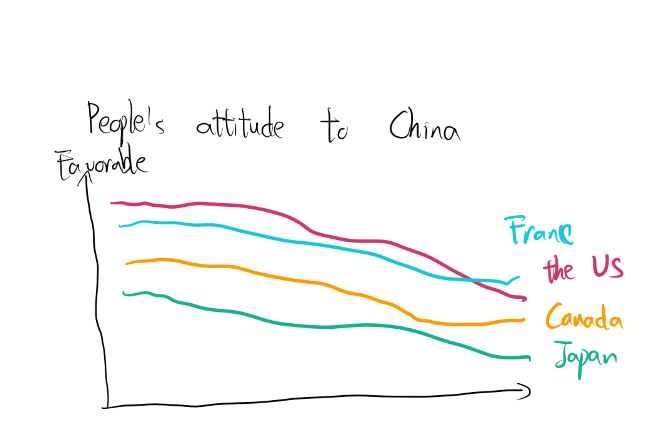 People's attitude to China
Favorable
Franc
the US
Canada
Japan